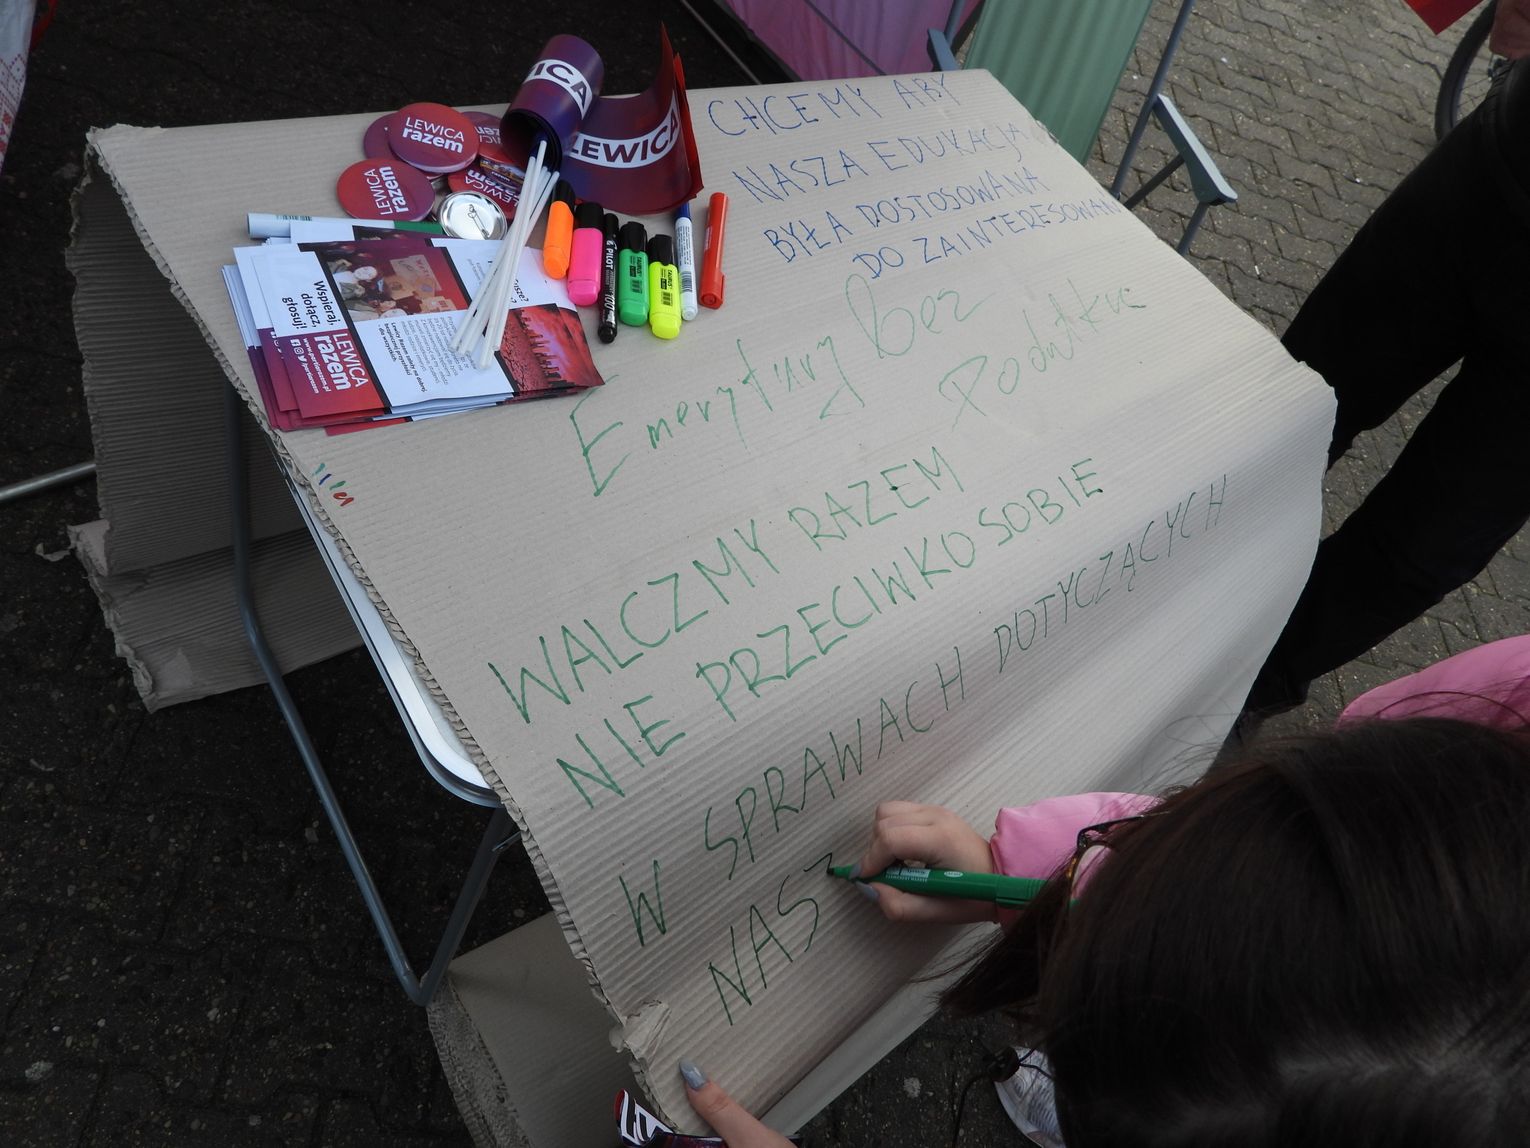 LEWICA
razem
LEWICA
razem
LEWICA
LEWICA
razem
PILOT
Wspieraj,
dołącz,
głosuj!
LEWICA
razem
CHCEMY ABY
NASZA EDUKACJA
BYŁA DOSTOSOWANA
DO ZAINTERESOWAŃ
Emerytury Bez
Podatku
WALCZMY RAZEM
NIE PRZECIWKO SOBIE
W SPRAWACH DOTYCZĄCYCH
NASZ